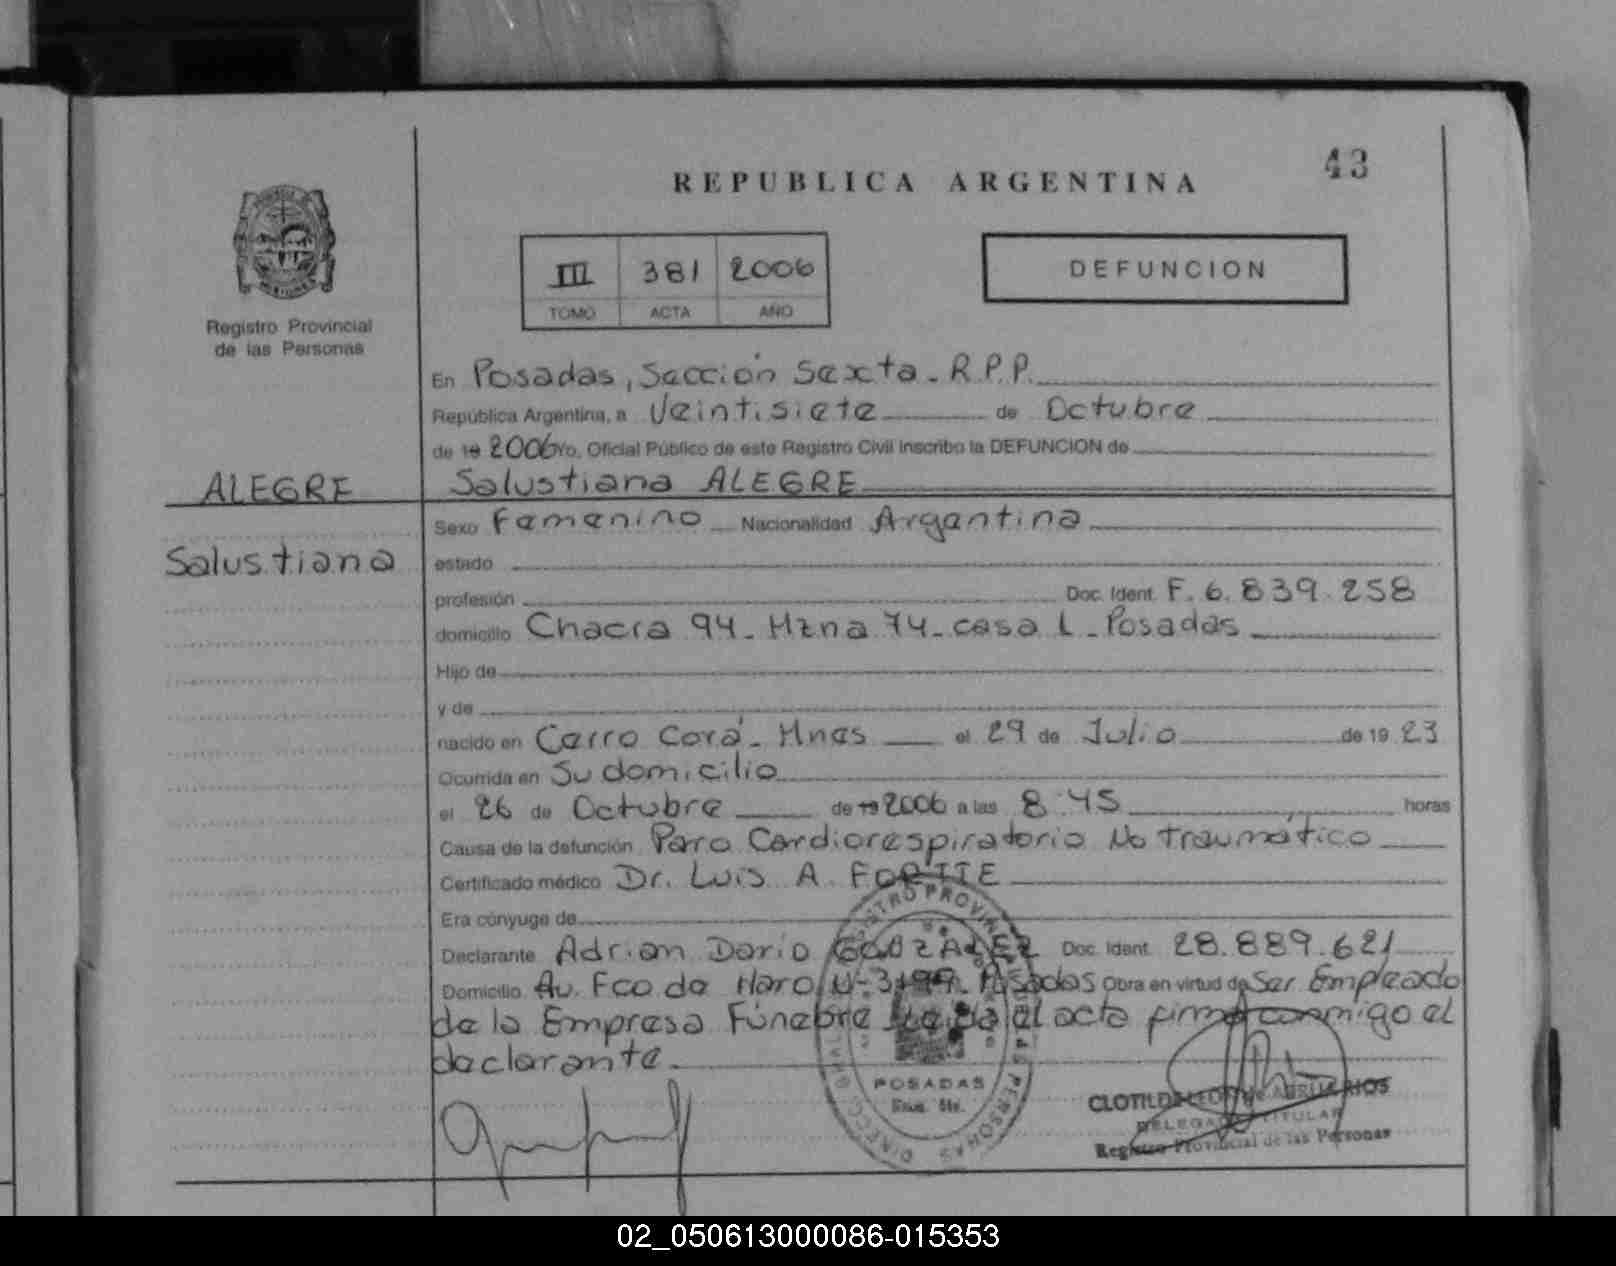 43
REPUBLICA ARGENTINA
III 381 2006
TOMO ACTA AÑO
DEFUNCION
Registro Provincial
de las Personas
En Posadas, Sección Sexta. R.P.P.
República Argentina, a Veintisiete de Octubre
de 19 2006 Yo, Oficial Público de este Registro Civil inscribo la DEFUNCION de
ALEGRE
Salustiana ALEGRE
Sexo Femenino Nacionalidad Argentina
Salustiana
estado
profesión Doc. Ident. F. 6.839.258
domicilio Chacra 94 - Mzna 74 - casa L - Posadas
Hijo de
y de
nacido en Cerro Corá - Mnes el 29 de Julio de 19 23
Ocurrida en Su domicilio
el 26 de Octubre de 19 2006 a las 8:45 horas
Causa de la defunción Paro Cardiorespiratorio No traumático
Certificado médico Dr. Luis A. FORTTE
Era cónyuge de
Declarante Adrian Dario GONZALEZ Doc. Ident. 28.889.621
Domicilio Av. Fco de Haro Posadas Obra en virtud de Ser Empleado
de la Empresa Fúnebre Leída el acta firma conmigo el
declarante
POSADAS
CLOTILDE RIOS
DELEGADA TITULAR
Registro Provincial de las Personas
02_050613000086-015353